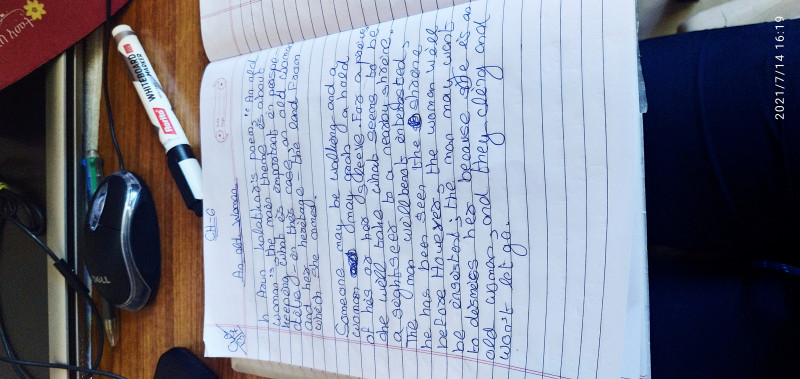 CH-6
An old Woman
In Arun kolatkar's poem "An old
woman" is the main theme is about
keeping what is important in perspe
in this case, an old woman
and her heritage - the land From
which she came.
Someone may be walking and a
woman may grab a hold
of his or her sleeve. For a price
she will take what seems to be
a sightseer to a nearby shrine.
The man will be not interested,
he has been seen the shrine
before However; the woman will
be insistent; the man may want
to dismiss her because she is an
old woman; and they cling and
won't let go.
WHITEBOARD
MARKER
2021/7/14 16:19